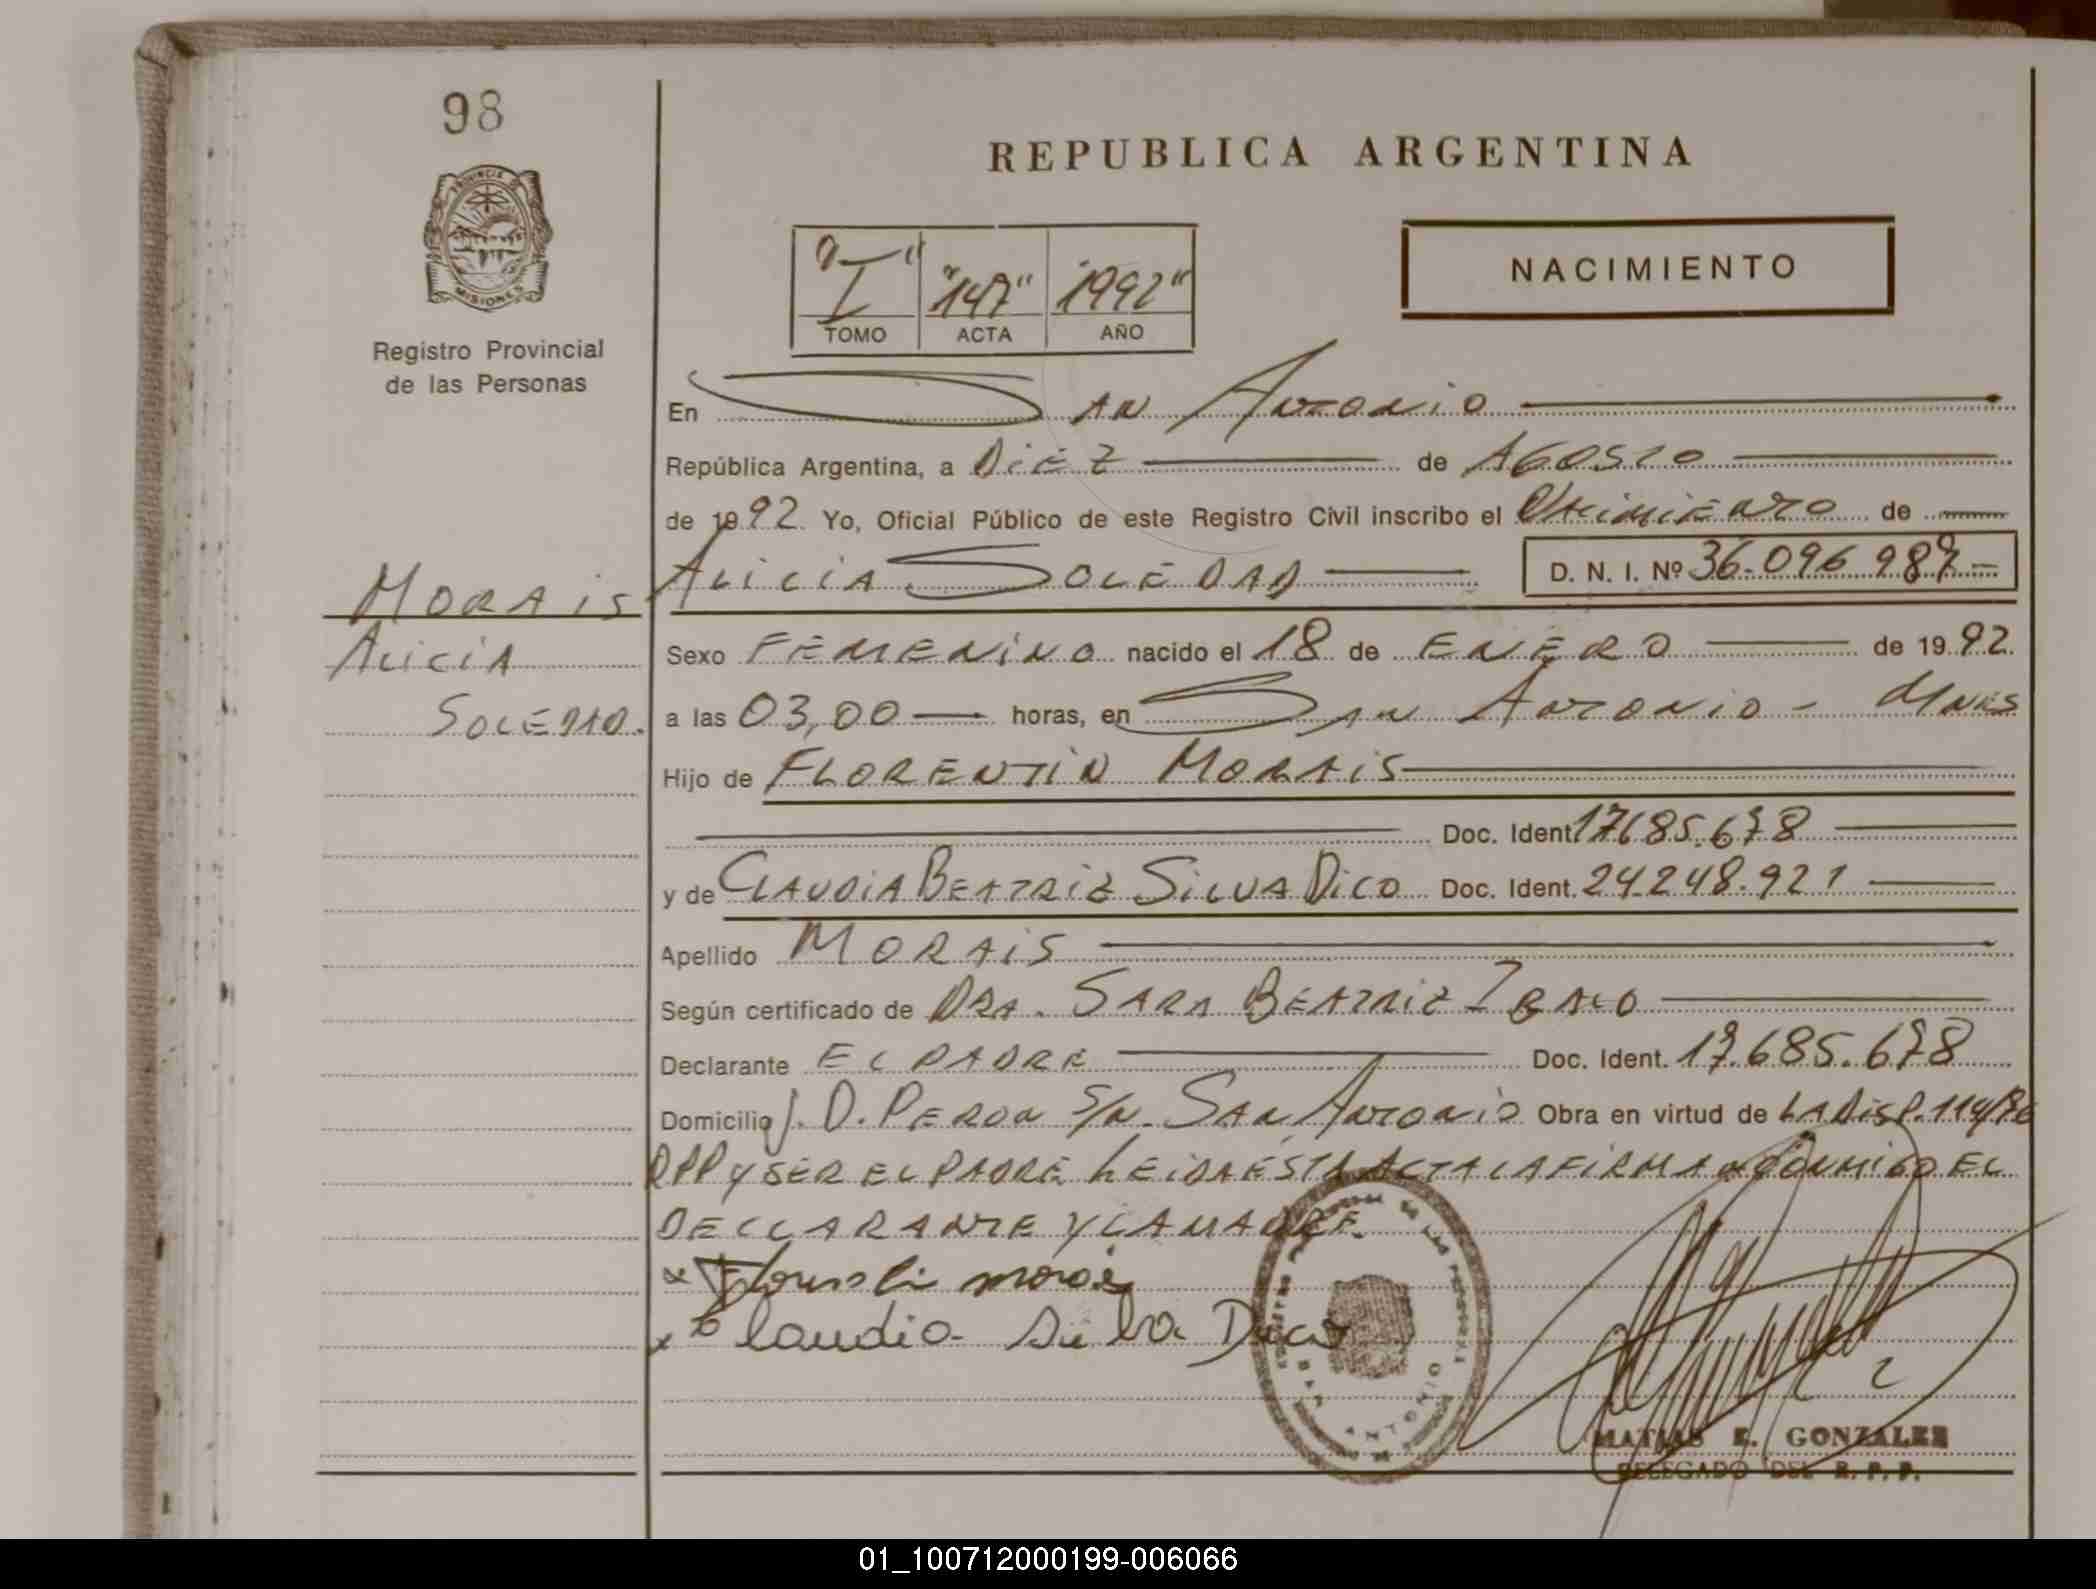 98
REPUBLICA ARGENTINA
PROVINCIA DE
MISIONES
Registro Provincial
de las Personas
"I" "147" "1992"
TOMO ACTA AÑO
NACIMIENTO
En SAN ANTONIO
República Argentina, a DIEZ de AGOSTO
de 1992 Yo, Oficial Público de este Registro Civil inscribo el NACIMIENTO de
ALICIA SOLEDAD D. N. I. Nº 36.096.989
MORAIS
ALICIA
SOLEDAD.
Sexo FEMENINO nacido el 18 de ENERO de 1992
a las 03,00 horas, en SAN ANTONIO - MNES
Hijo de FLORENTIN MORAIS
Doc. Ident. 17685.678
y de CLAUDIA BEATRIZ SILVA DICO Doc. Ident. 24.248.921
Apellido MORAIS
Según certificado de DRA. SARA BEATRIZ
Declarante EL PADRE Doc. Ident. 17.685.678
Domicilio J. D. PERON S/N. SAN ANTONIO Obra en virtud de LA DISP. 114/86
RPP Y SER EL PADRE LEIDA ESTA ACTA LA FIRMAN CONMIGO EL
DECLARANTE Y LA MADRE.
x Claudia Silva Dico
SAN ANTONIO
MATIAS E. GONZALEZ
DELEGADO DEL R. P. P.
01_100712000199-006066